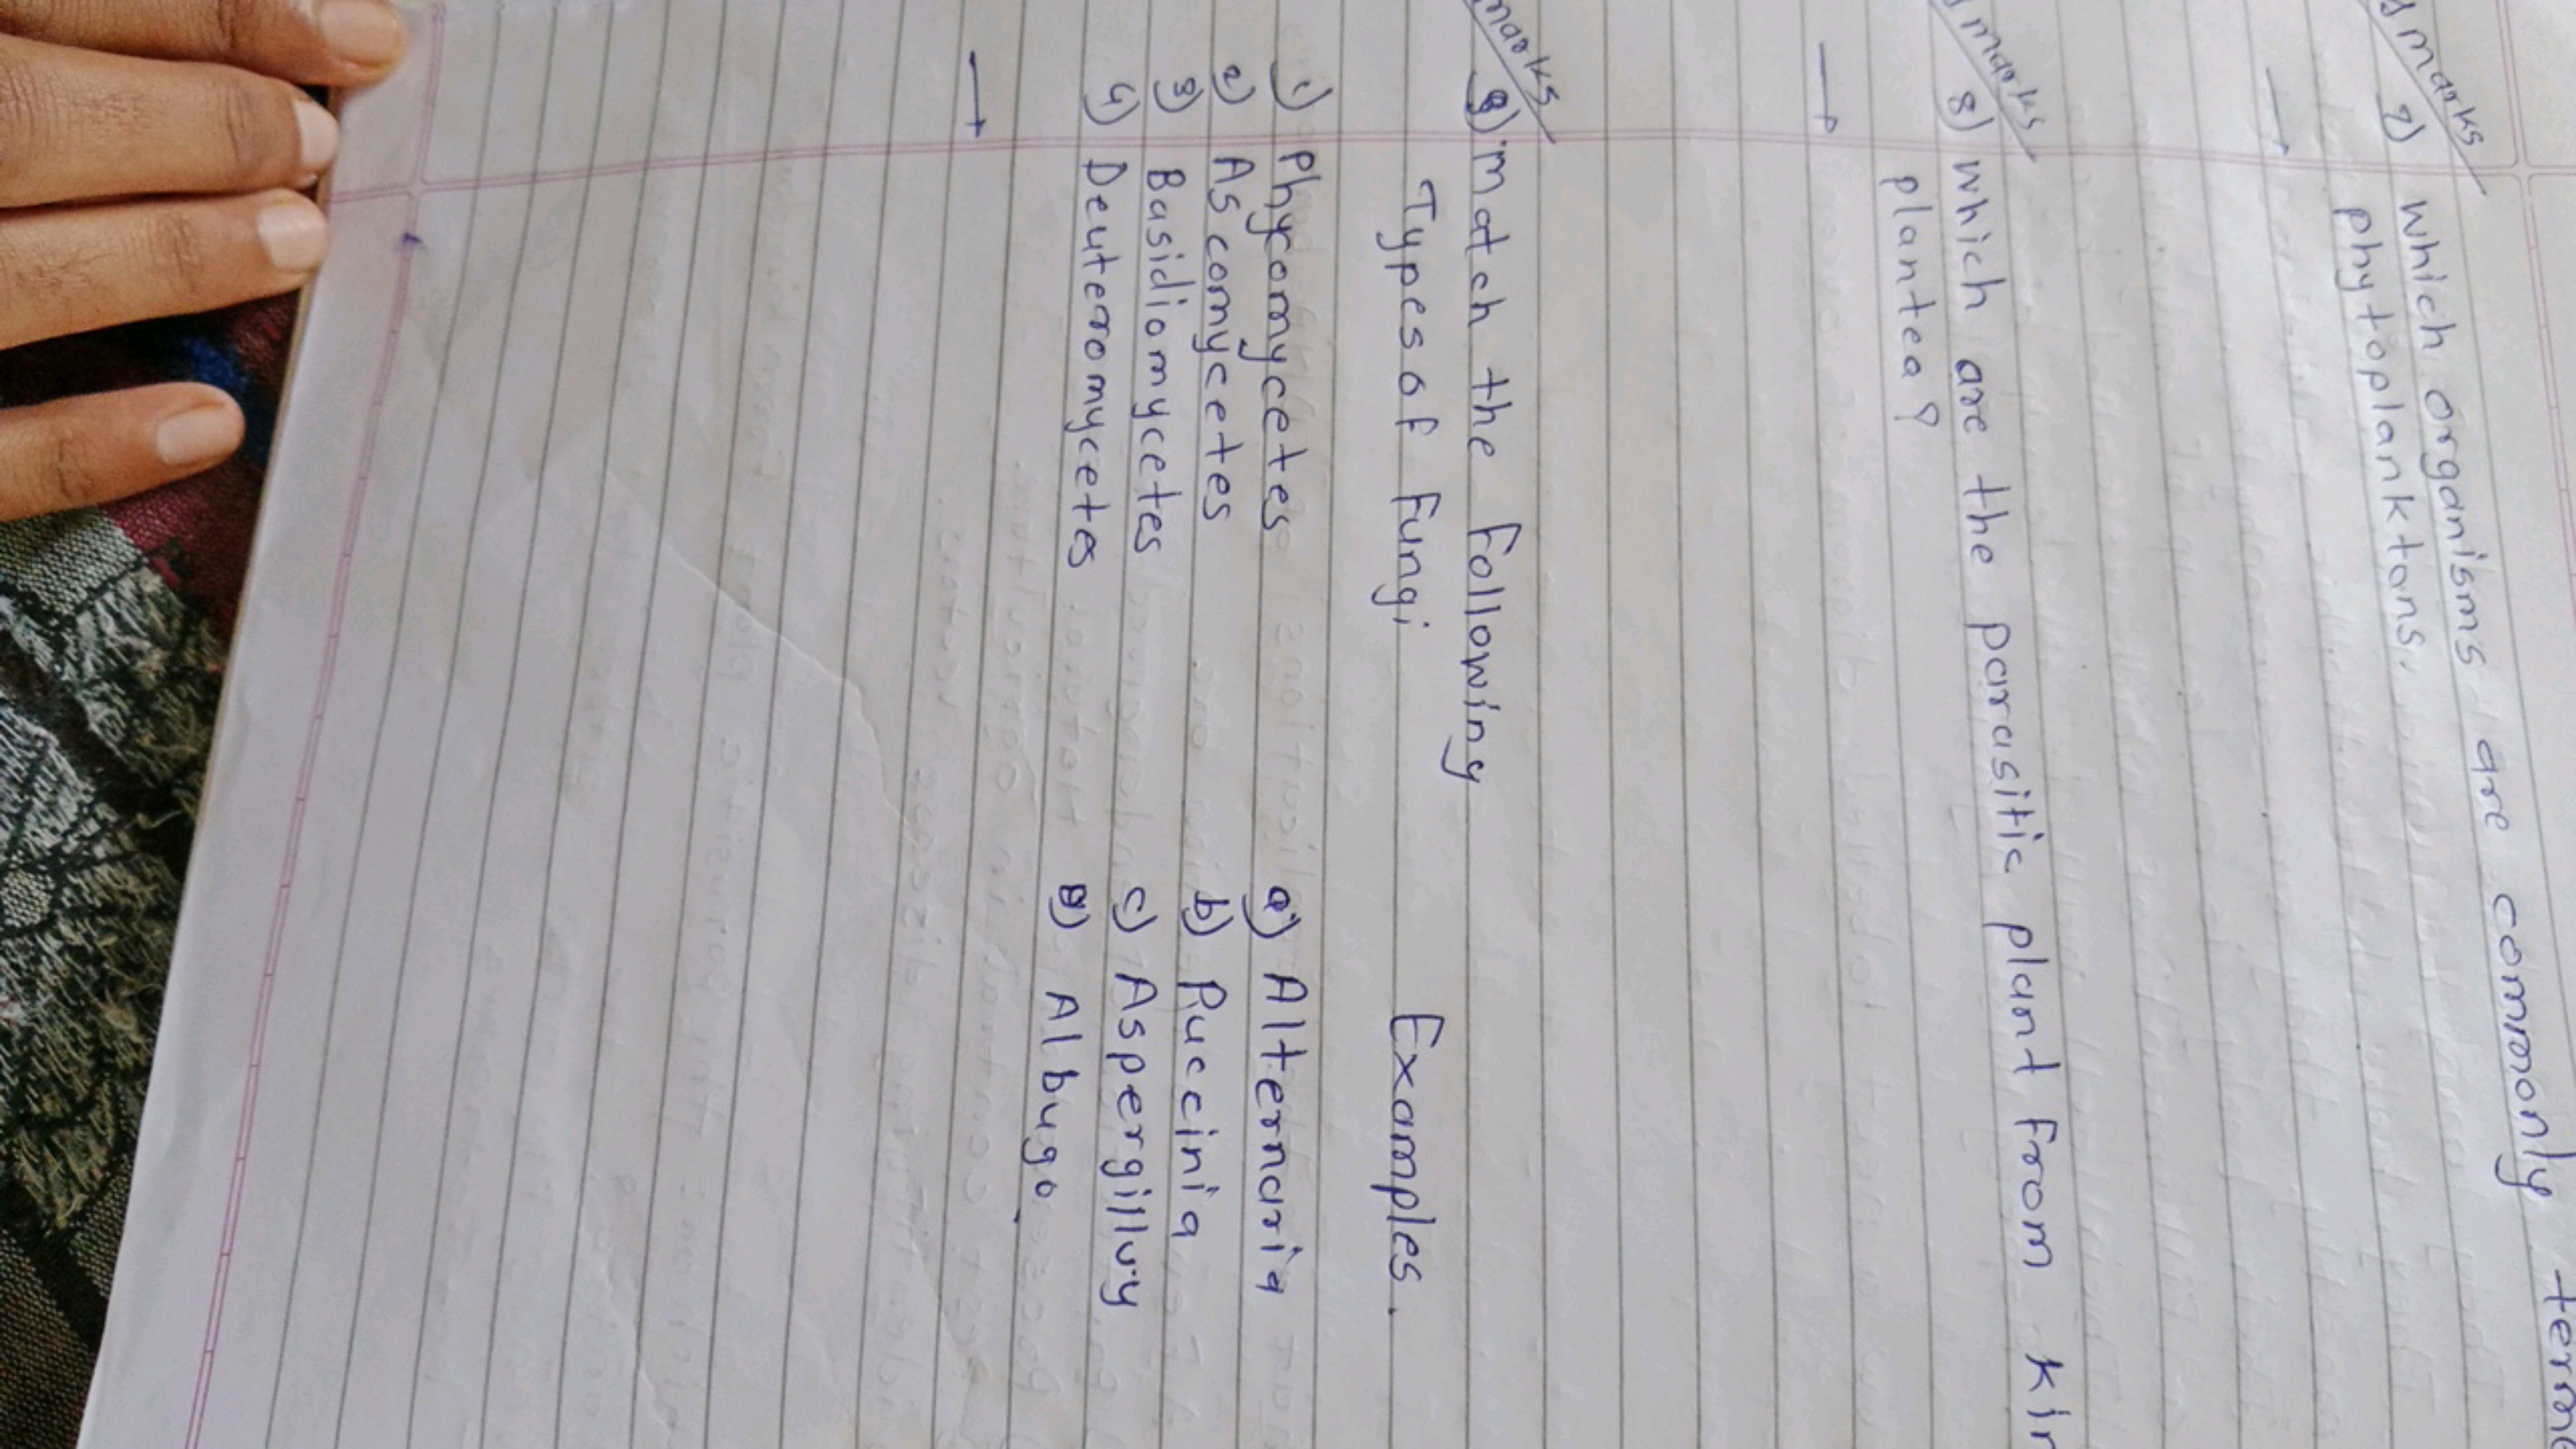 marks
7) which organisms are commonly
phytoplanktons.
marks
8) which are the parasitic plant from
plantea?
marks
9) match the following
Types of Fungi Examples.
1) Phycomycetes a) Alternaria
2) Ascomycetes b) Puccinia
3) Basidiomycetes c) Aspergilluy
4) Deuteromycetes Albugo